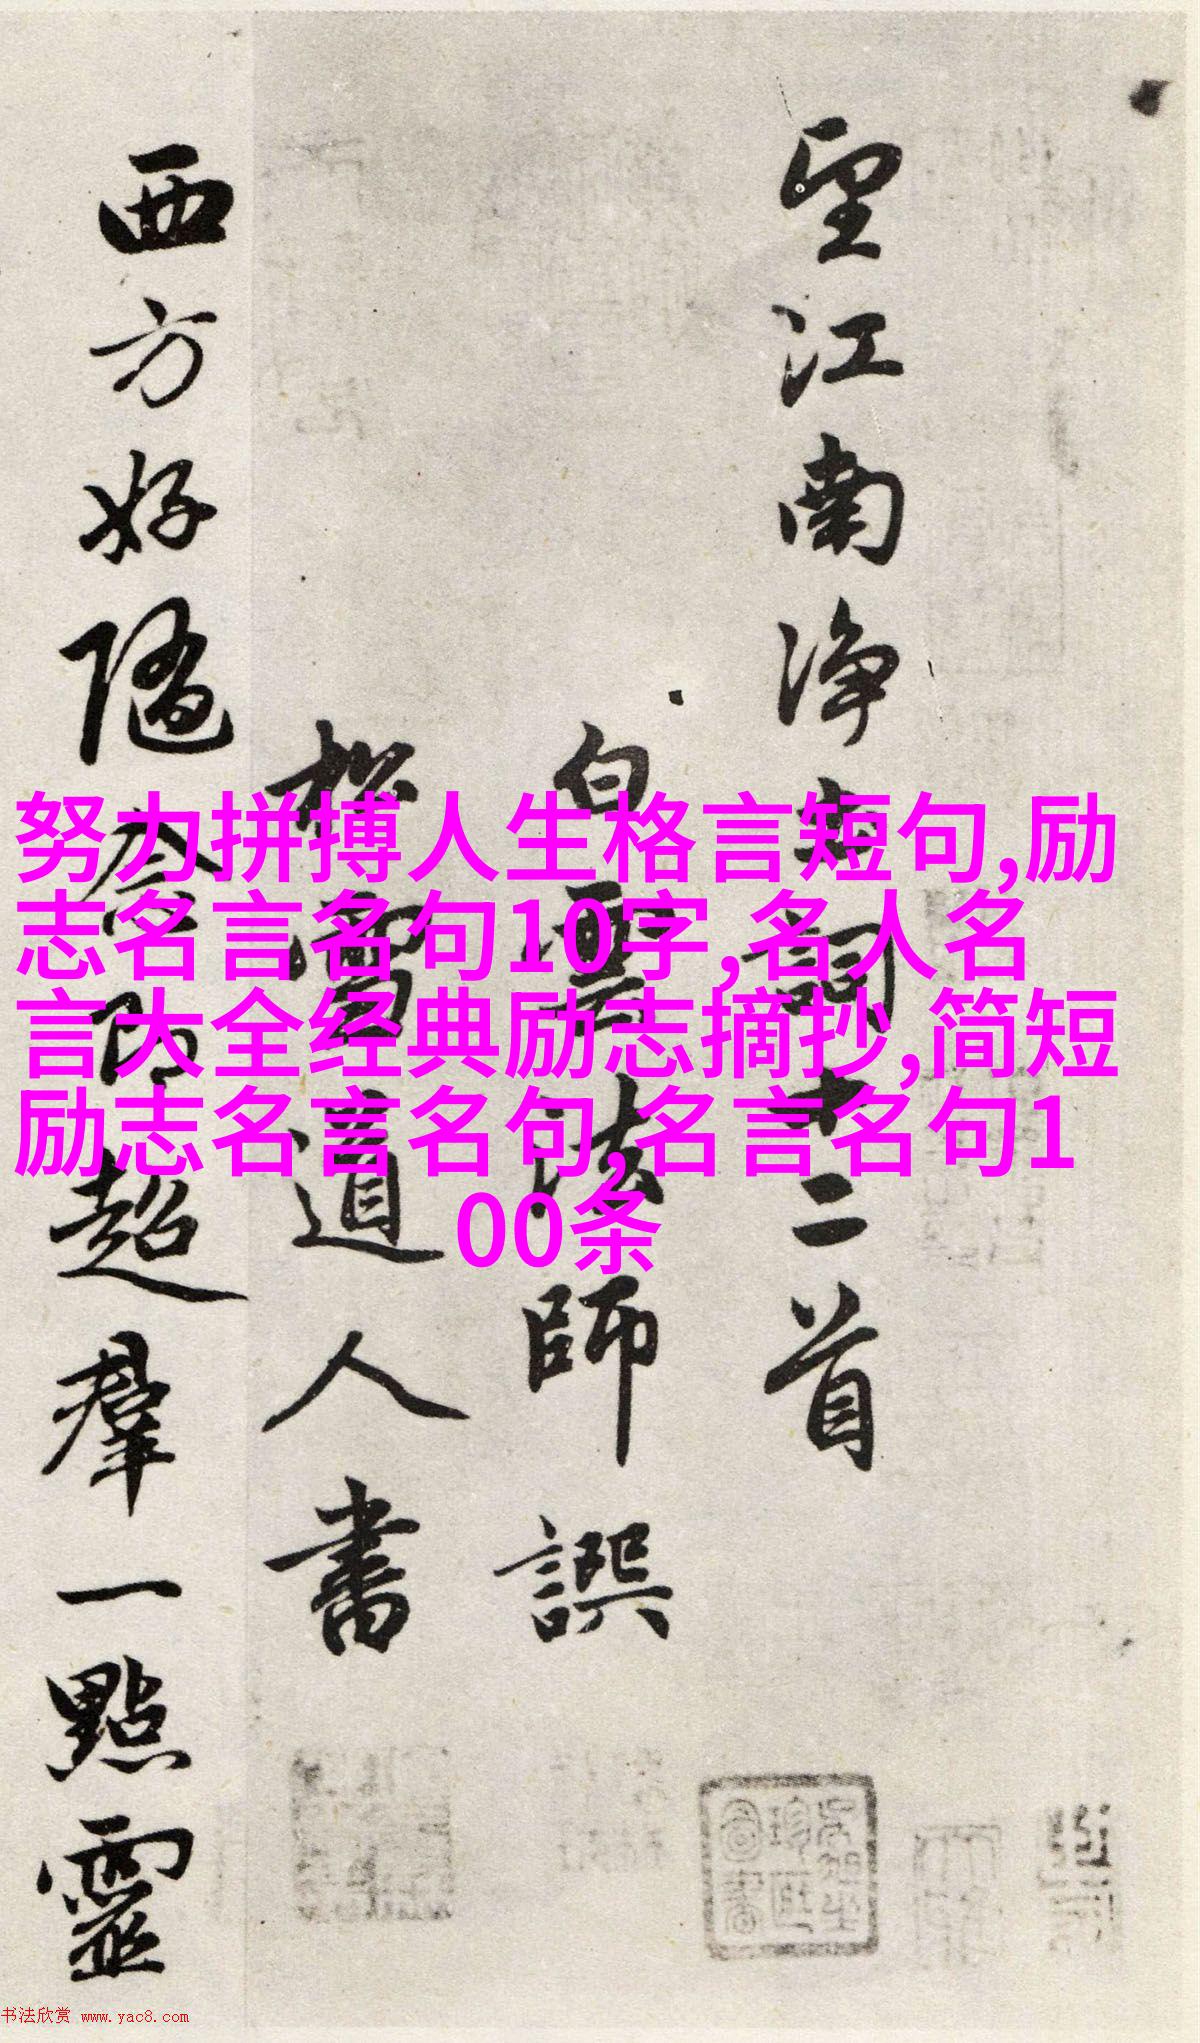 望江南淨土詞十二首
白雲法師譔
松雪道人書
西方好隨念即超羣一點靈
努力拼搏人生格言短句,励
志名言名句10字,名人名
言大全经典励志摘抄,简短
励志名言名句,名言名句1
00条
书法欣赏 www.yac8.com